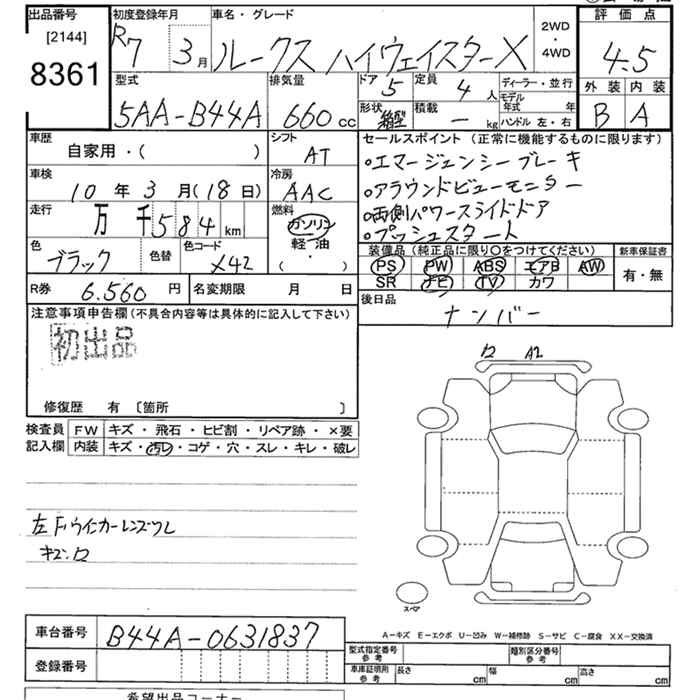 出品番号 初度登録年月 車名・グレード 評価点
[2144] 8361
R7 3月 ルークス ハイウェイスターX 2WD・4WD 4.5
型式 排気量 ドア 5 定員 4人 ディーラー・並行 外装 内装
モデル年式 年
5AA-B44A 660cc 形状 箱型 積載 ー kg ハンドル 左・右 B A
車歴 シフト セールスポイント(正常に機能するものに限ります)
自家用・( ) AT
・エマージェンシーブレーキ
車検 冷房
・アラウンドビューモニター
10年3月(18日) AAC
・両側パワースライドドア
走行 燃料
万千584km ガソリン・軽油・( )
・プッシュスタート
色 色替 色コード 装備品(純正品に限り○をつけてください) 新車保証書
ブラック X42
PS PW ABS エアB AW 有・無
SR ナビ TV カワ
R券 6.560円 名変期限 月 日 後日品
ナンバー
注意事項申告欄(不具合内容等は具体的に記入して下さい)
初出品
ワ A2
修復歴 有 〔箇所 〕
検査員記入欄 FW キズ・飛石・ヒビ割・リペア跡・×要
内装 キズ・汚レ・コゲ・穴・スレ・キレ・破レ
左Fウインカーレンズワレ
キズ.ワ
スペア
A-キズ E-エクボ U-凹み W-補修跡 S-サビ C-腐食 XX-交換済
車台番号 B44A-0631837
型式指定番号 参考 類別区分番号 参考
登録番号 車庫証明用 参考 長さ cm 幅 cm 高さ cm
希望出品コーナー